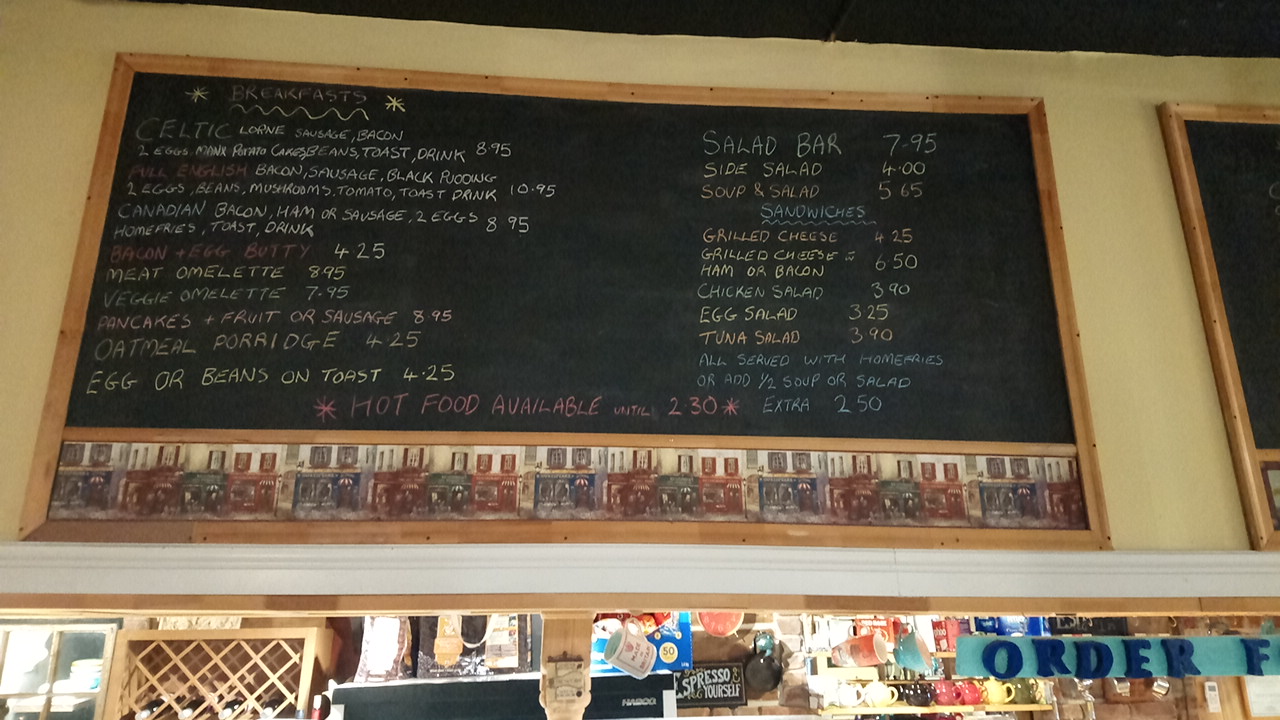 BREAKFASTS
CELTIC LORNE SAUSAGE, BACON
2 EGGS, MANX POTATO CAKES, BEANS, TOAST, DRINK 8.95
FULL ENGLISH BACON, SAUSAGE, BLACK PUDDING
2 EGGS, BEANS, MUSHROOMS, TOMATO, TOAST DRINK 10.95
CANADIAN BACON, HAM OR SAUSAGE, 2 EGGS
HOMEFRIES, TOAST, DRINK 8 95
BACON + EGG BUTTY 4.25
MEAT OMELETTE 8.95
VEGGIE OMELETTE 7.95
PANCAKES + FRUIT OR SAUSAGE 8.95
OATMEAL PORRIDGE 4.25
EGG OR BEANS ON TOAST 4.25
* HOT FOOD AVAILABLE UNTIL 2 30 *
SALAD BAR 7.95
SIDE SALAD 4.00
SOUP & SALAD 5 65
SANDWICHES
GRILLED CHEESE 4.25
GRILLED CHEESE
HAM OR BACON 6.50
CHICKEN SALAD 3 90
EGG SALAD 3 25
TUNA SALAD 3 90
ALL SERVED WITH HOMEFRIES
OR ADD 1/2 SOUP OR SALAD
EXTRA 2 50
ORDER F
50
ESPRESSO
YOURSELF